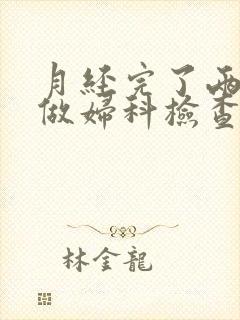 月經完了兩
做婦科檢查
林金龍